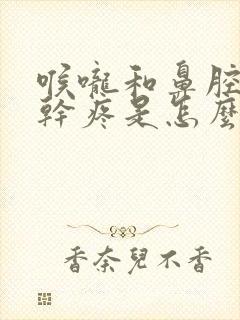 喉嚨和鼻腔
幹疼是怎麼
香奈兒不香